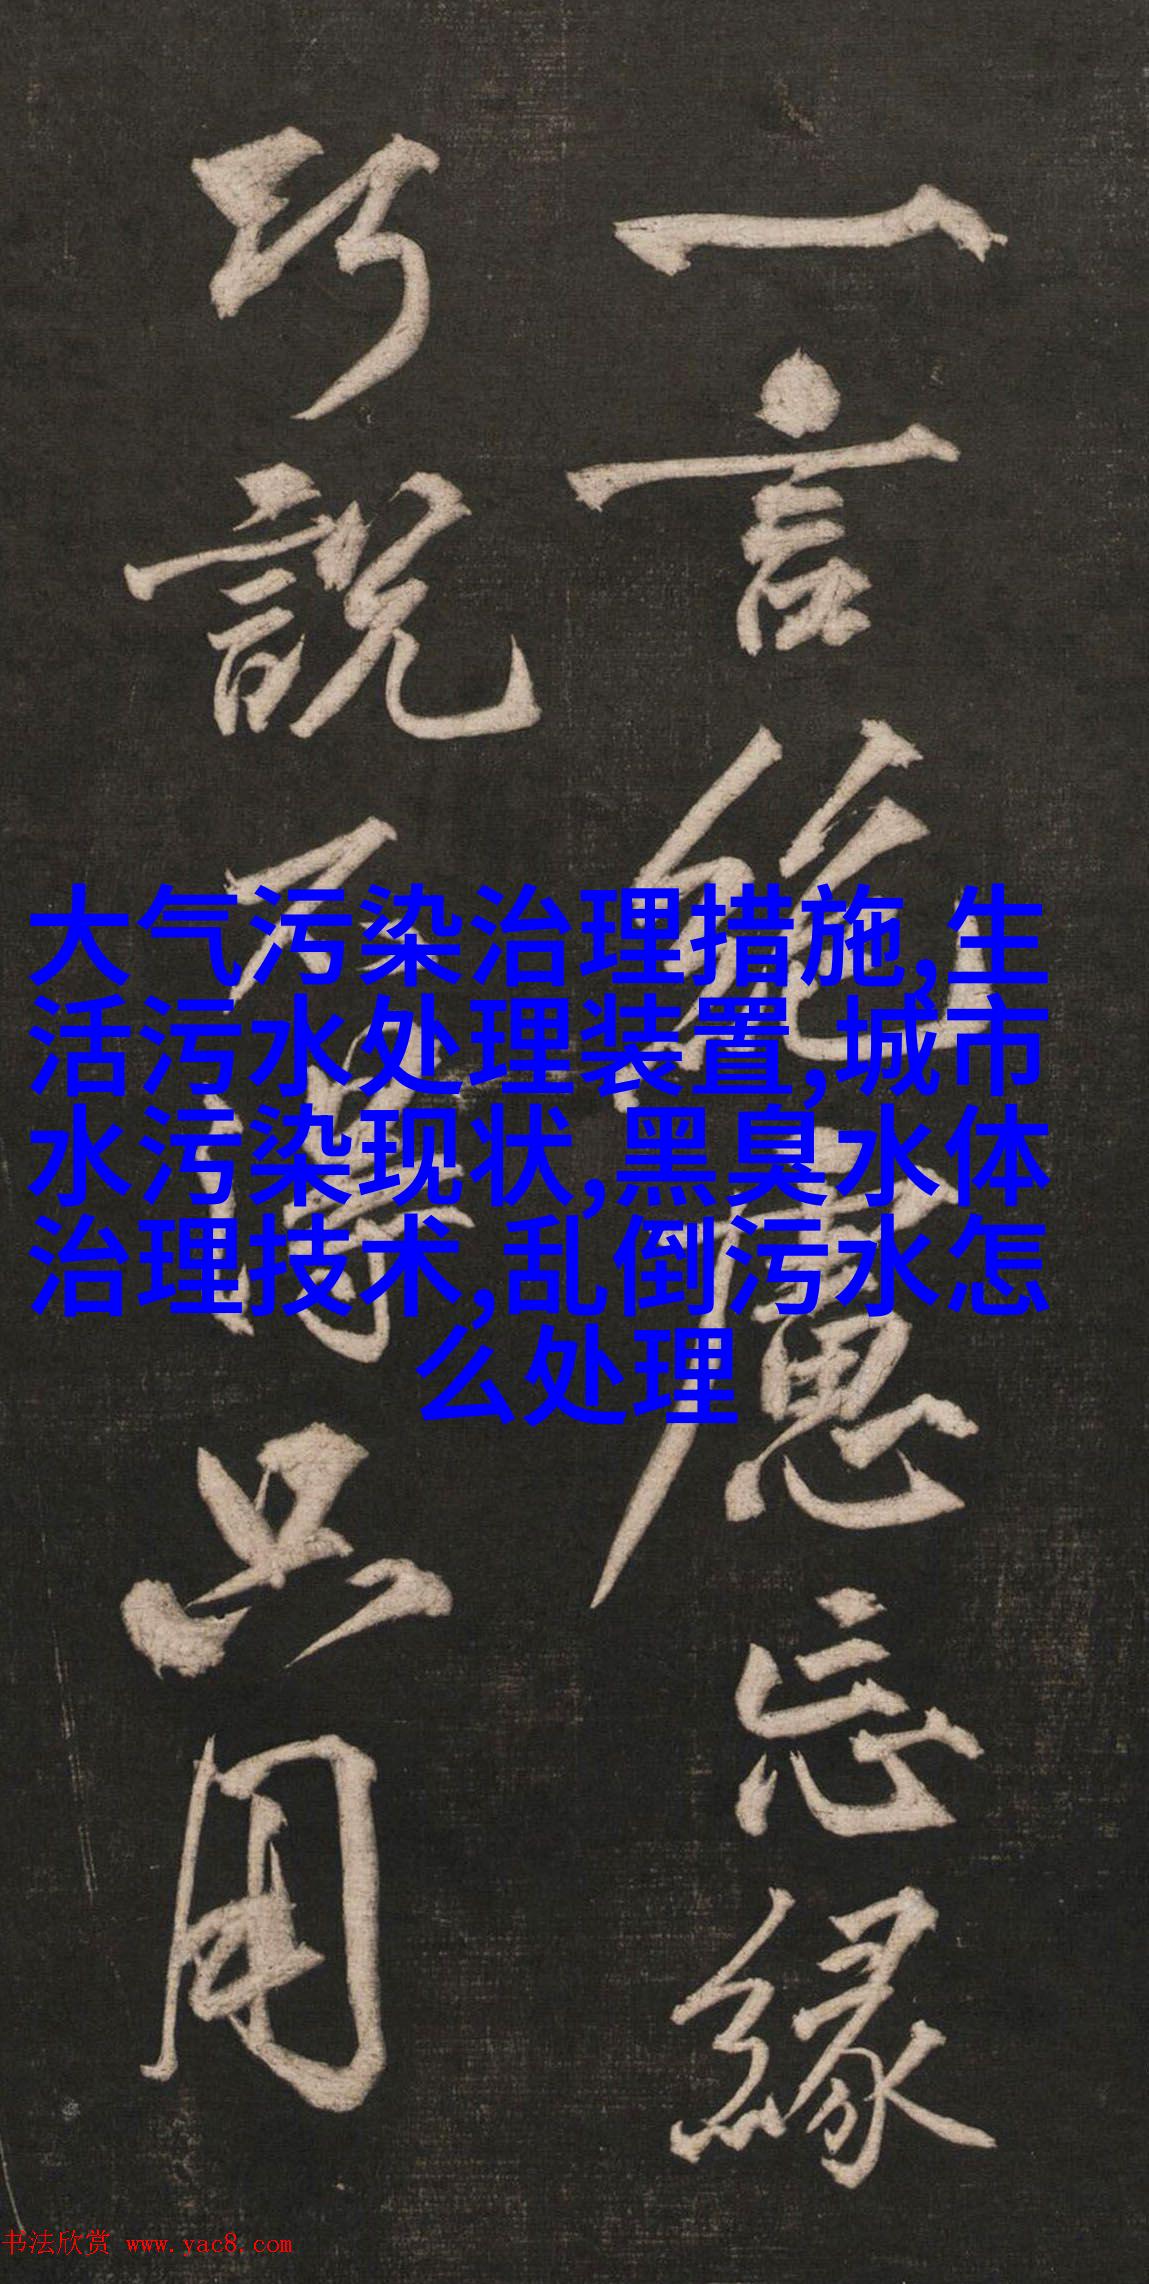 一言絶慮忘緣
巧說不得只用
大气污染治理措施,生
活污水处理装置,城市
水污染现状,黑臭水体
治理技术,乱倒污水怎
么处理
书法欣赏 www.yac8.com